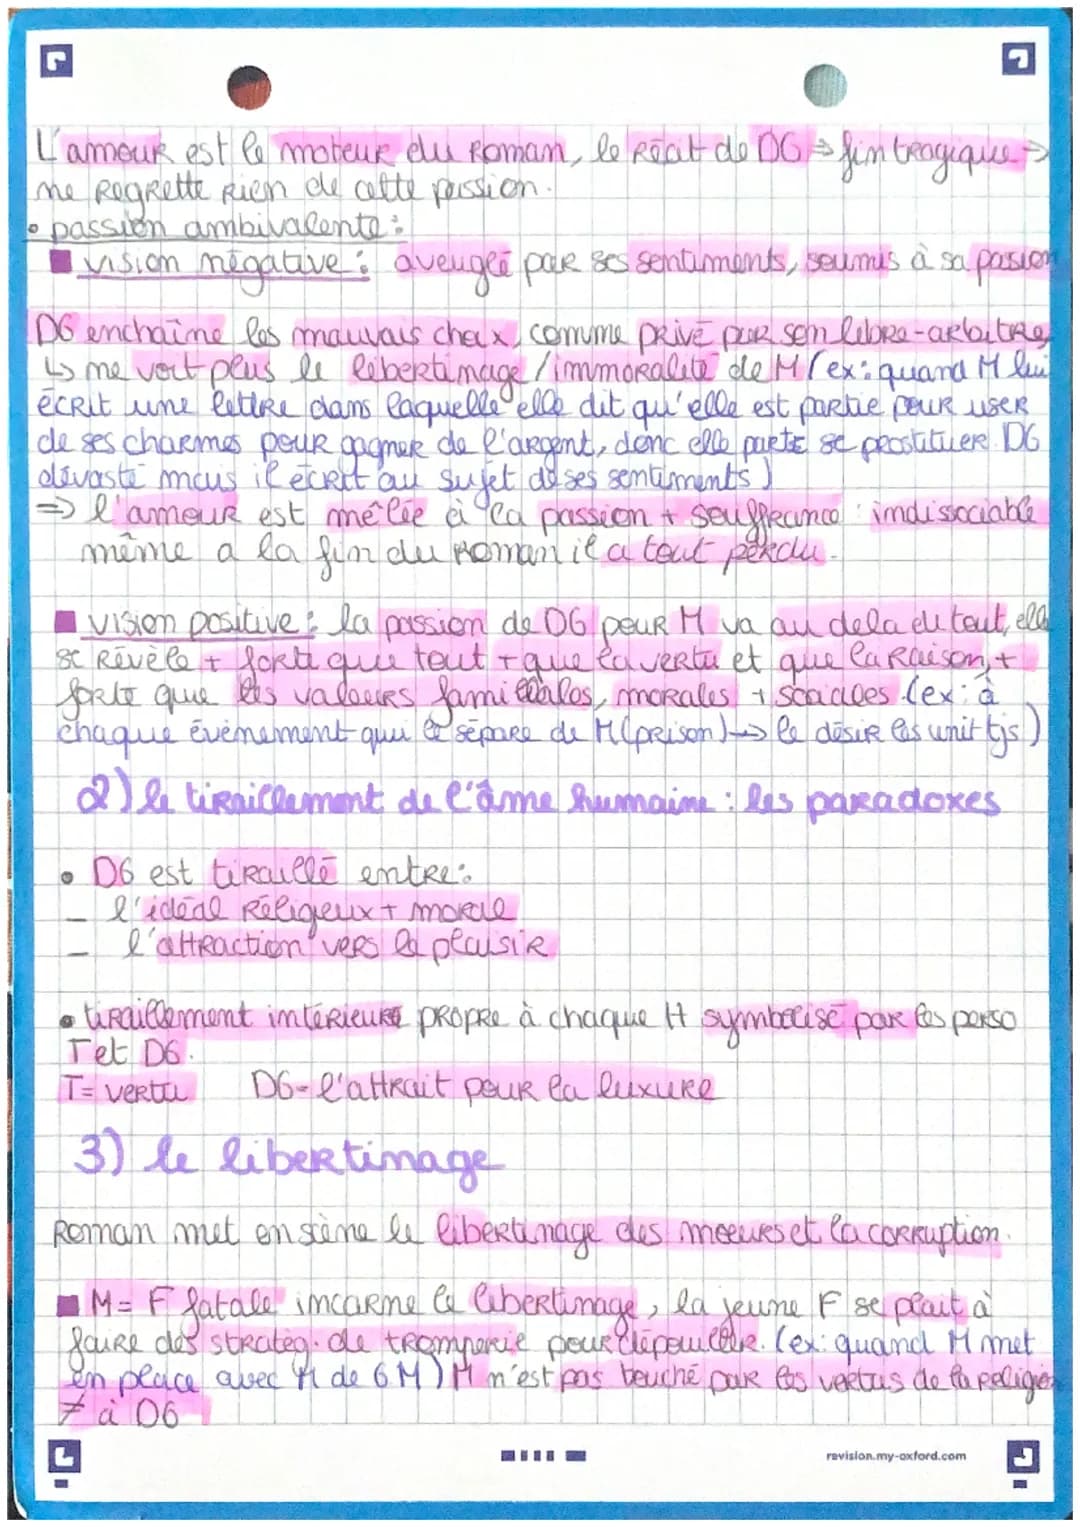 L'amour est le moteur du Roman, le récit de DG ⇒ fin tragique →
ne regrette rien de cette passion.
• passion ambivalente :
■ vision négative : aveuglé par ses sentiments, soumis à sa passion
DG enchaîne les mauvais choix, comme privé par son libre-arbitre,
↳ ne voit plus le libertinage / immoralité de M (ex : quand M lui
écrit une lettre dans laquelle elle dit qu'elle est partie pour user
de ses charmes pour gagner de l'argent, donc elle parte se prostituer. DG
dévasté mais il écrit au sujet de ses sentiments)
⇒ l'amour est mêlée à la passion + souffrance : indissociable
même a la fin du Roman il a tout perdu.
■ vision positive : la passion de DG pour M va au dela du tout, elle
se révèle + forte que tout + que la vertu et que la Raison, +
forte que les valeurs familiales, morales + sociales (ex : à
chaque évènement qui le sépare de M (prison) → le désir les unit tjs)
2) le tiraillement de l'âme humaine : les paradoxes
• DG est tiraillé entre :
– l'idéal Réligieux + moral
– l'attraction vers le plaisir
• tiraillement intérieure propre à chaque H symbolisé par les perso
T et DG.
T = vertu DG - l'attrait pour la luxure
3) le libertinage
Roman met en scène le libertinage des moeurs et la corruption.
■ M = F fatale incarne le libertinage, la jeune F se plait à
faire des stratég. de tromperie pour dépouiller. (ex : quand M met
en place avec M de G M) M n'est pas touché par les vertus de la religion
≠ à DG
revision.my-oxford.com